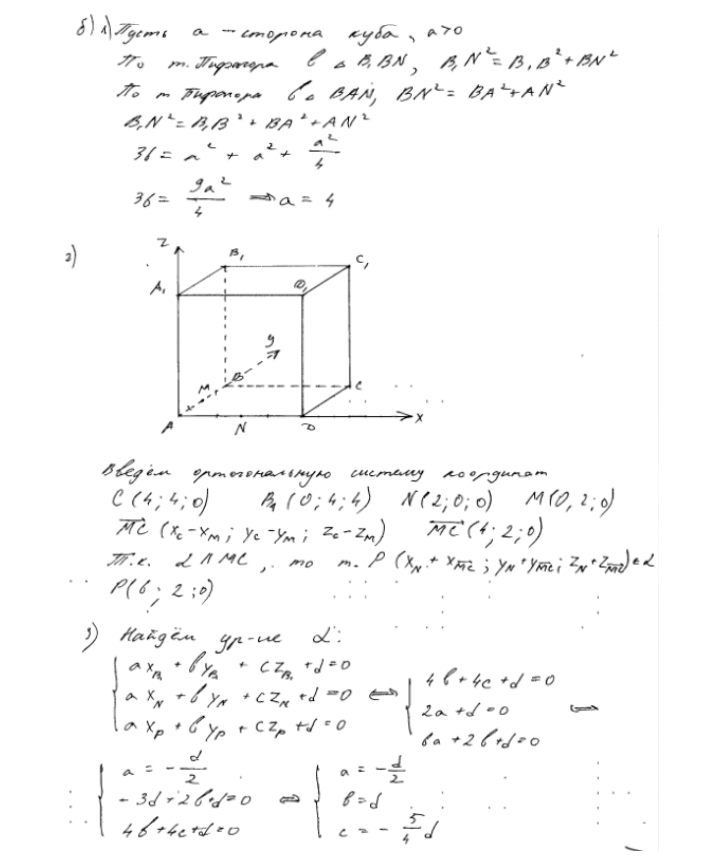 б) 1) Пусть a – сторона куба, a>0
По т. Пифагора в △ B₁BN, B₁N² = B₁B² + BN²
По т Пифагора в △ BAN, BN² = BA² + AN²
B₁N² = B₁B² + BA² + AN²
36 = a² + a² + a²/4
36 = 9a²/4 ⇒ a = 4
2)
Z
B₁
C₁
A₁
D₁
y
M
B
C
A
N
D
X
Введём ортогональную систему координат
C (4; 4; 0) B₁ (0; 4; 4) N (2; 0; 0) M (0, 2; 0)
MC (x_C - x_M; y_C - y_M; z_C - z_M) MC (4; 2; 0)
Т.к. α ∧ MC, то т. P (x_N + x_MC; y_N + y_MC; z_N + z_MC) ∈ α
P (6; 2; 0)
3) Найдём ур-ие α:
a x_B₁ + b y_B₁ + c z_B₁ + d = 0
a x_N + b y_N + c z_N + d = 0 ⇔
a x_P + b y_P + c z_P + d = 0
4b + 4c + d = 0
2a + d = 0 ⇔
6a + 2b + d = 0
a = - d/2
- 3d + 2b + d = 0 ⇔
4b + 4c + d = 0
a = - d/2
b = d
c = - 5/4 d